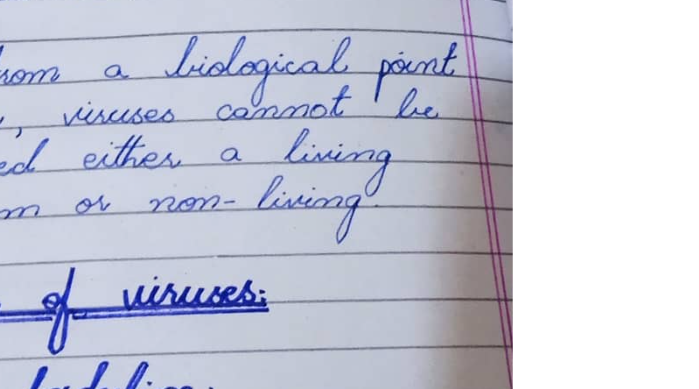 rom a biological point
, viruses cannot be
ed either a living
m or non-living.
of viruses: